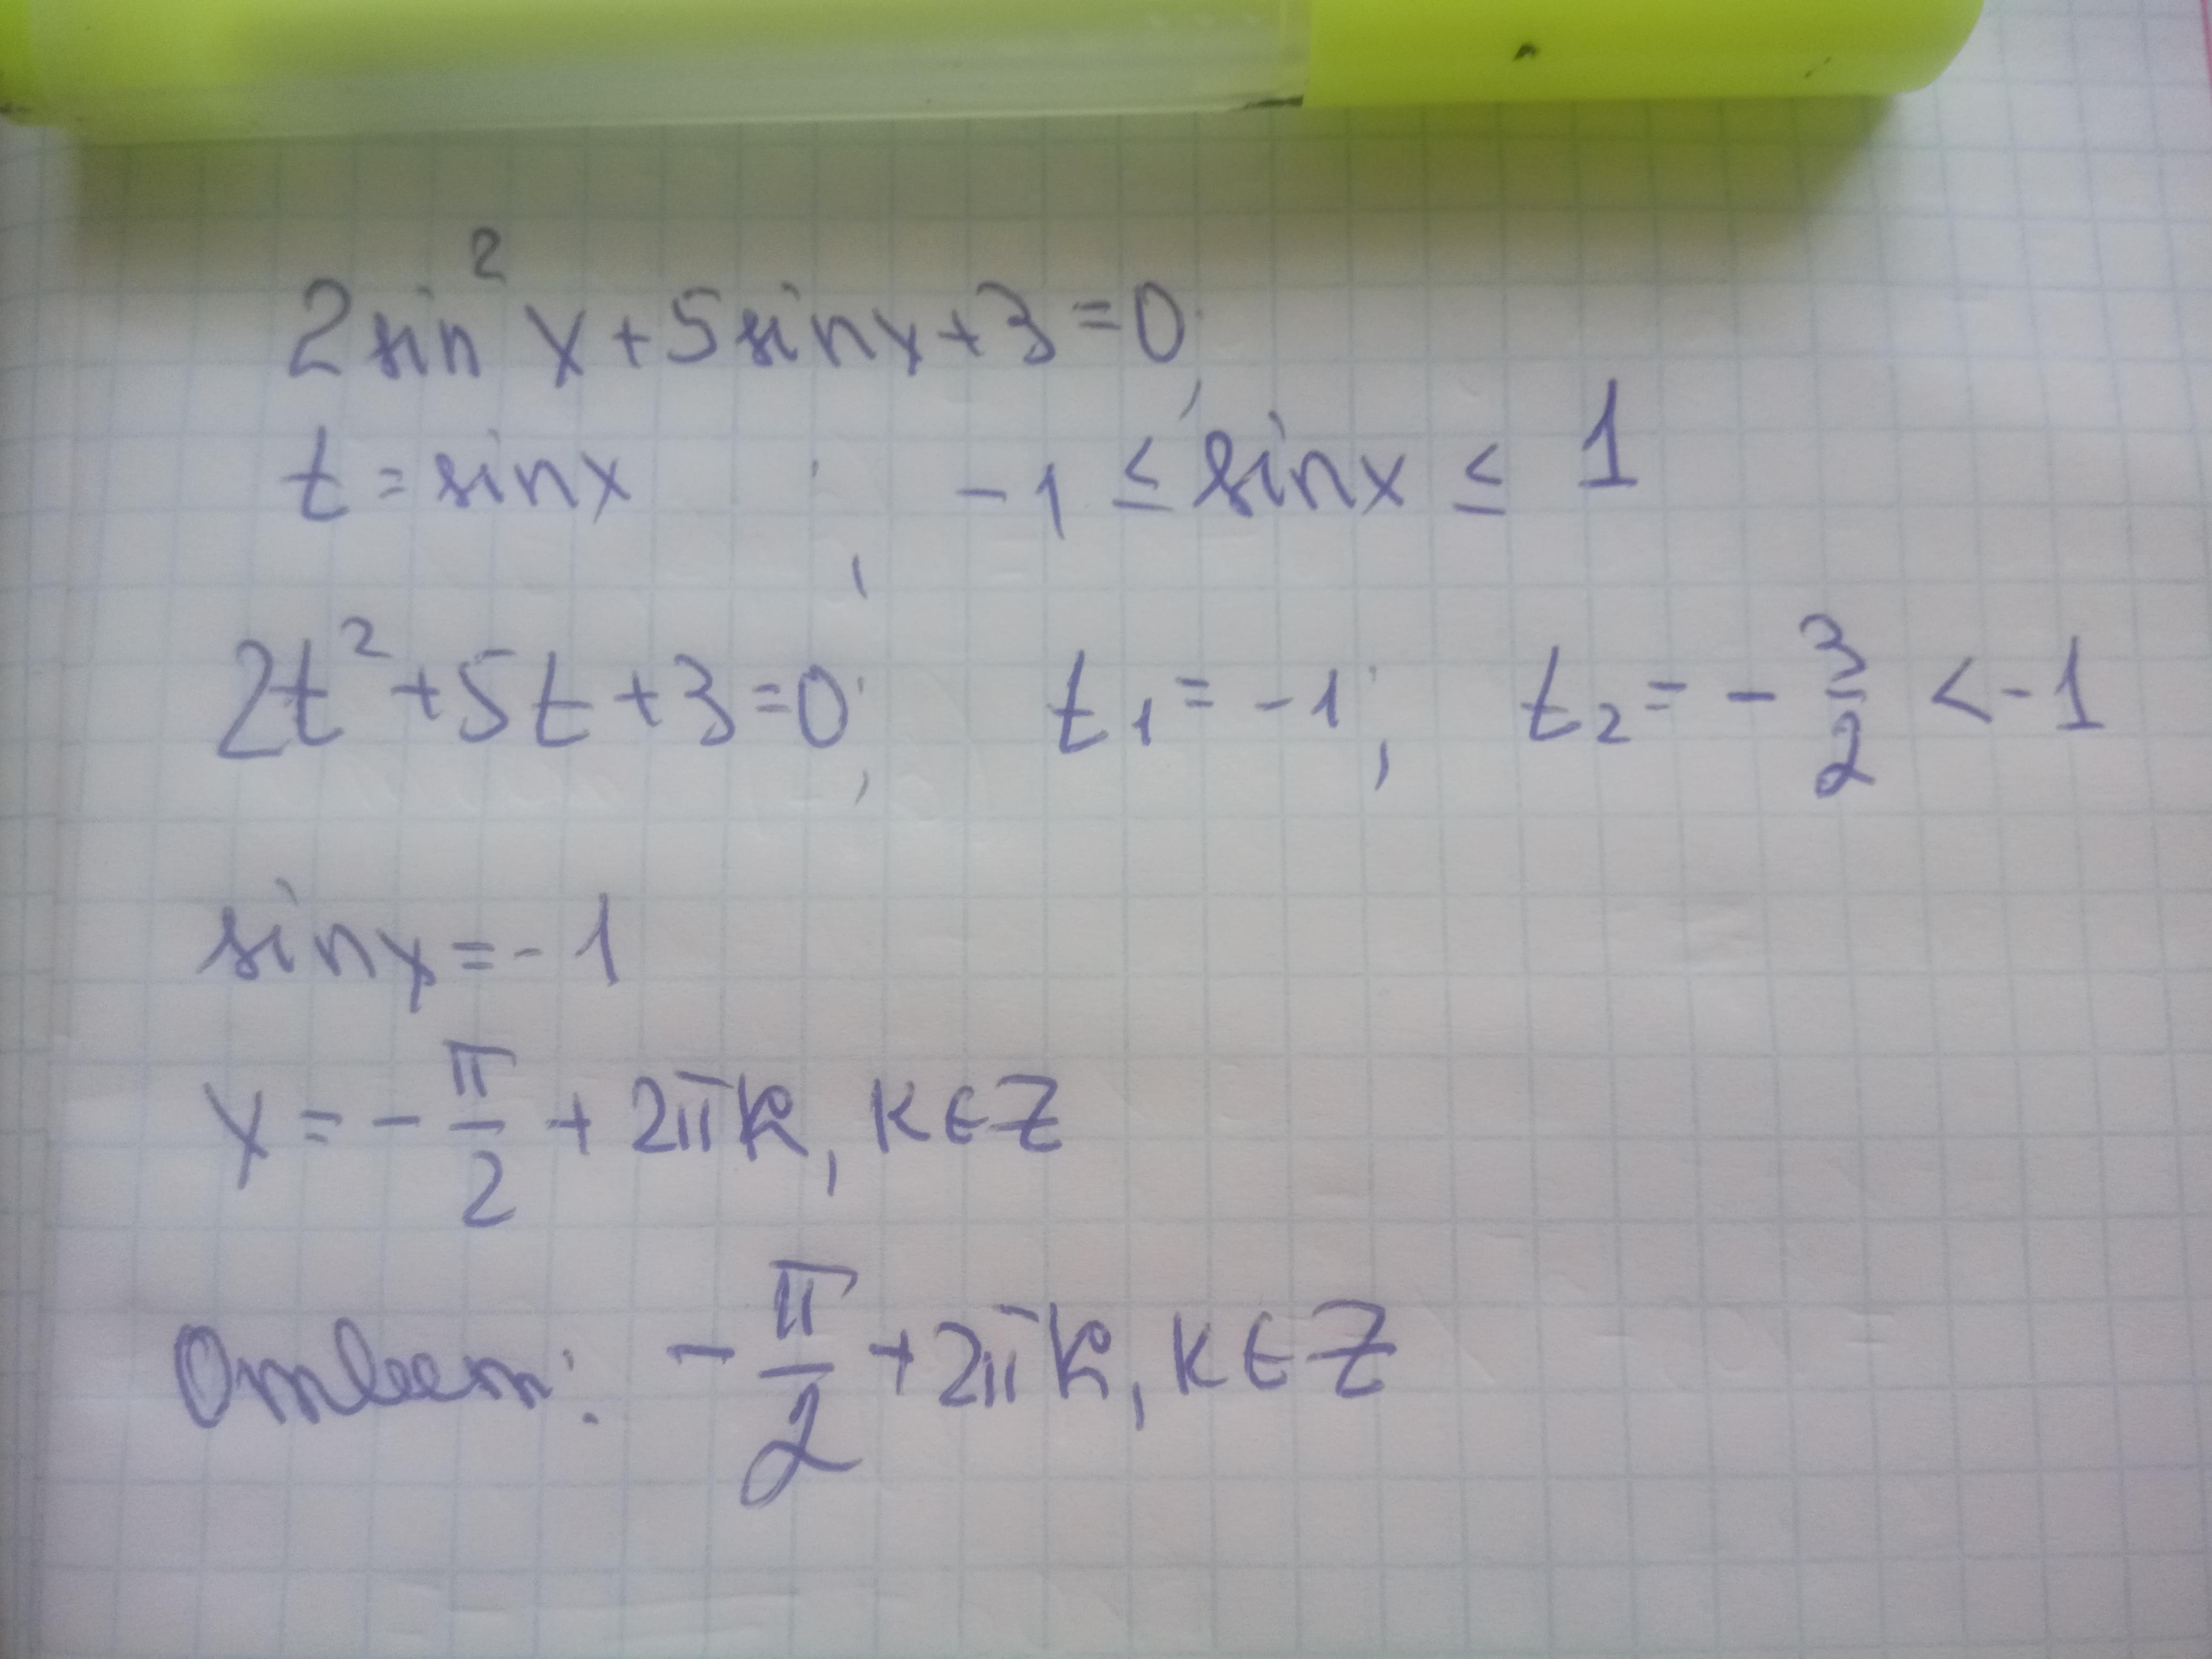 2sin²x+5sinx+3=0;
t=sinx; -1 ≤ sinx ≤ 1
2t²+5t+3=0; t₁=-1; t₂=-3/2 <-1
sinx=-1
x=-π/2+2πk, k∈Z
Ответ: -π/2+2πk, k∈Z